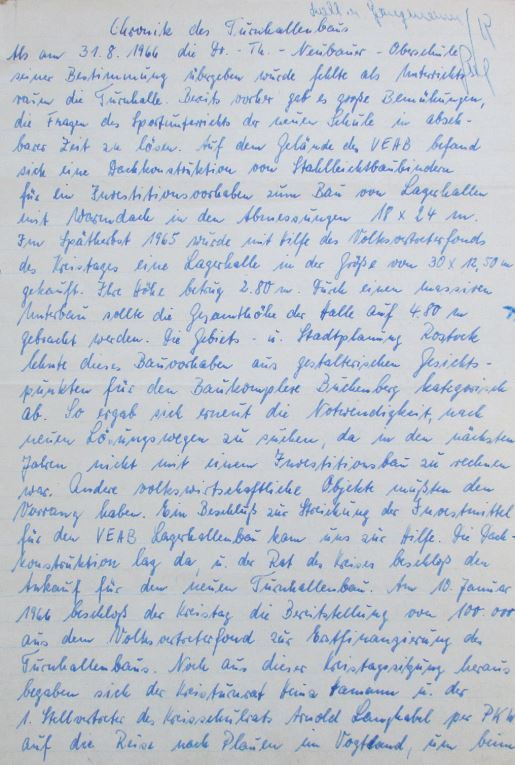 Chronik des Turnhallenbaus
Als am 31.8.1966 die Dr.-Th.-Neubauer-Oberschule
seiner Bestimmung übergeben wurde fehlte als Unterrichts-
raum die Turnhalle. Bereits vorher gab es große Bemühungen,
die Fragen des Sportunterrichts der neuen Schule in abseh-
barer Zeit zu lösen. Auf dem Gelände des VEAB befand
sich eine Dachkonstruktion von Stahlleichtbaubindern
für ein Investitionsvorhaben zum Bau von Lagerhallen
mit Warmdach in den Abmessungen 18 x 24 m.
Im Spätherbst 1965 wurde mit Hilfe des Volksvertreterfonds
des Kreistages eine Lagerhalle in der Größe von 30 x 12,50 m
gekauft. Ihre Höhe betrug 2.80 m. Durch einen massiven
Unterbau sollte die Gesamthöhe der Halle auf 4.80 m
gebracht werden. Die Gebiets- u. Stadtplanung Rostock
lehnte dieses Bauvorhaben aus gestalterischen Gesichts-
punkten für den Baukomplex Buchenberg kategorisch
ab. So ergab sich erneut die Notwendigkeit, nach
neuen Lösungswegen zu suchen, da in den nächsten
Jahren nicht mit einem Investitionsbau zu rechnen
war. Andere volkswirtschaftliche Objekte mußten den
Vorrang haben. Ein Beschluß zur Streichung der Investmittel
für den VEAB Lagerhallenbau kam uns zur Hilfe. Die Dach-
konstruktion lag da, u. der Rat des Kreises beschloß den
Ankauf für den neuen Turnhallenbau. Am 10. Januar
1966 beschloß der Kreistag die Bereitstellung von 100 000
aus dem Volksvertreterfond zur Entfinanzierung des
Turnhallenbaus. Noch aus dieser Kreistagssitzung heraus
begaben sich der Kreisturnrat Heinz Hamann u. der
1. Stellvertreter des Kreisschulrats Arnold Langhabel per PKW
auf die Reise nach Plauen im Vogtland, um beim